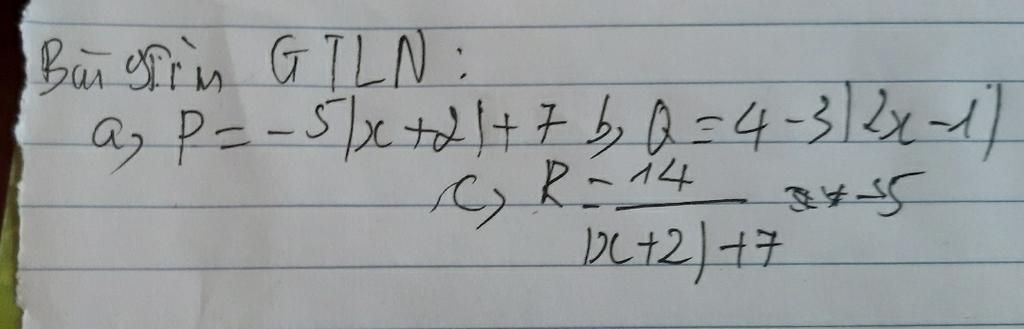 Bài tìm GTLN:
a, P = -5|x+2|+7 b, Q = 4-3|2x-1|
c, R = 14/(|x+2|+7) -5